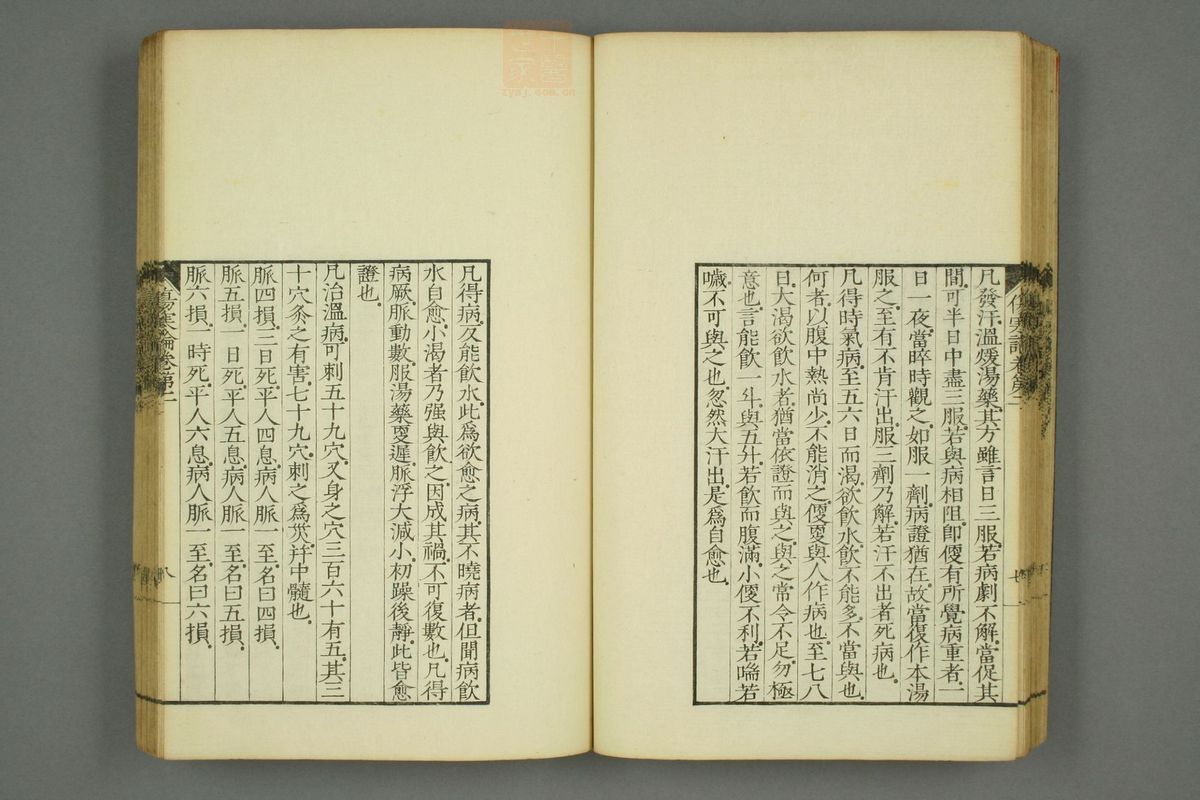 凡發汗溫煖湯藥其方雖言日三服若病劇不解當促其
間可半日中盡三服若與病相阻卽便有所覺病重者一
日一夜當晬時觀之如服一劑病證猶在故當復作本湯
服之至有不肯汗出服三劑乃解若汗不出者死病也
凡得時氣病至五六日而渴欲飲水飲不能多不當與也
何者以腹中熱尚少不能消之便更與人作病也至七八
日大渴欲飲水者猶當依證而與之與之常令不足勿極
意也言能飲一斗與五升若飲而腹滿小便不利若喘若
噦不可與之也忽然大汗出是爲自愈也
凡得病反能飲水此爲欲愈之病其不曉病者但聞病飲
水自愈小渴者乃强與飲之因成其禍不可復數也凡得
病厥脈動數服湯藥更遲脈浮大減小初躁後靜此皆愈
證也
凡治溫病可刺五十九穴又身之穴三百六十有五其三
十穴灸之有害七十九穴刺之爲災并中髓也
脈四損三日死平人四息病人脈一至名曰四損
脈五損一日死平人五息病人脈一至名曰五損
脈六損一時死平人六息病人脈一至名曰六損
傷寒論卷第二
zysj.com.cn